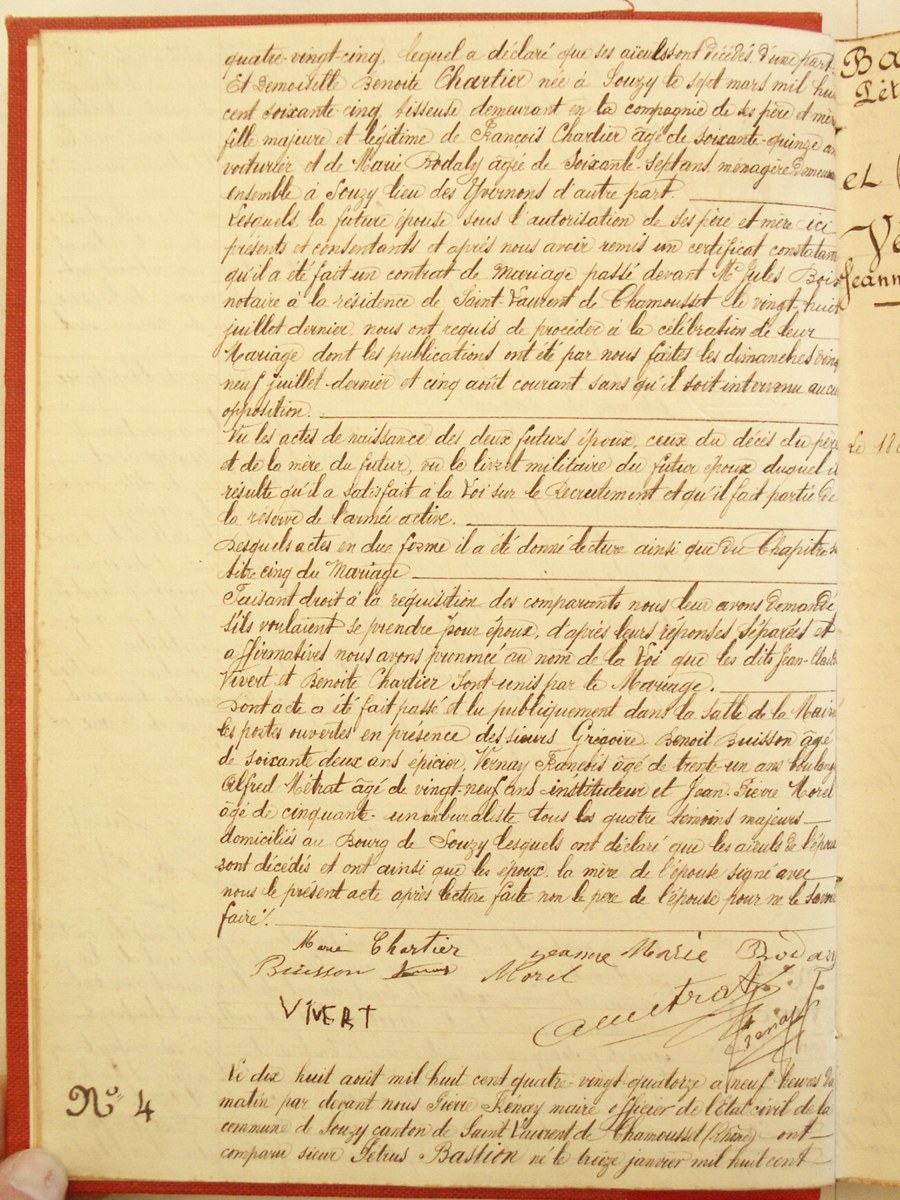 quatre-vingt-cinq, lequel a déclaré que ses aïeuls sont décédés, d'une part.
Et Demoiselle Benoite Chartier née à Souzy le sept mars mil hui
cent soixante-cinq, tisseuse demeurant en la compagnie de ses père et mère
fille majeure et légitime de François Chartier âgé de soixante-quinze an
voiturier et de Marie Bodaly âgée de soixante-sept ans, ménagère demeura
ensemble à Souzy lieu des Yvernons d'autre part.
Lesquels, la future épouse sous l'autorisation de ses père et mère ici
présents et consentants et après nous avoir remis un certificat constatant
qu'il a été fait un contrat de mariage passé devant Me Jules Boi
notaire à la résidence de Saint-Laurent de Chamousset le vingt-huit
juillet dernier, nous ont requis de procéder à la célébration de leur
Mariage dont les publications ont été par nous faites les dimanches ving
neuf juillet-dernier et cinq août courant sans qu'il soit intervenu aucu
opposition.
Vu les actes de naissance des deux futurs époux, ceux du décès du père
et de la mère du futur, vu le livret militaire du futur époux duquel il
résulte qu'il a satisfait à la Loi sur le Recrutement et qu'il fait partie de
la réserve de l'armée active.
Desquels actes en due forme il a été donné lecture ainsi que du Chapitre s
titre cinq du Mariage
Faisant droit à la réquisition des comparants nous leur avons demandé
s'ils voulaient se prendre pour époux, d'après leurs réponses séparées et
affirmatives nous avons prononcé au nom de la Loi que les dits Jean-Clau
Vivert et Benoite Chartier sont unis par le Mariage.
Dont acte a été fait passé et lu publiquement dans la salle de la Mairi
les portes ouvertes en présence des sieurs Grégoire Benoit Buisson âgé
de soixante deux ans épicier, Vernay François âgé de trente-un ans boulang
Alfred Métrat âgé de vingt-neuf ans instituteur et Jean-Pierre Morel
âgé de cinquante-un buraliste tous les quatre témoins majeurs
domiciliés au Bourg de Souzy lesquels ont déclaré que les aïeuls de l'épous
sont décédés et ont ainsi que les époux, la mère de l'épouse signé avec
nous le présent acte après lecture faite non le père de l'épouse pour ne le savoir
faire.
Marie Chartier jeanne Marie
Buisson Morel
VIVERT ametrat
No 4
Le dix huit août mil huit cent quatre-vingt-quatorze a neuf heures du
matin par devant nous Pierre Thénay maire officier de l'état civil de la
commune de Souzy canton de Saint-Laurent de Chamousset (Rhône) ont
comparu sieur Pétrus Bastion né le treize janvier mil huit cent
Ba
Pét
et
Ve
Jeann